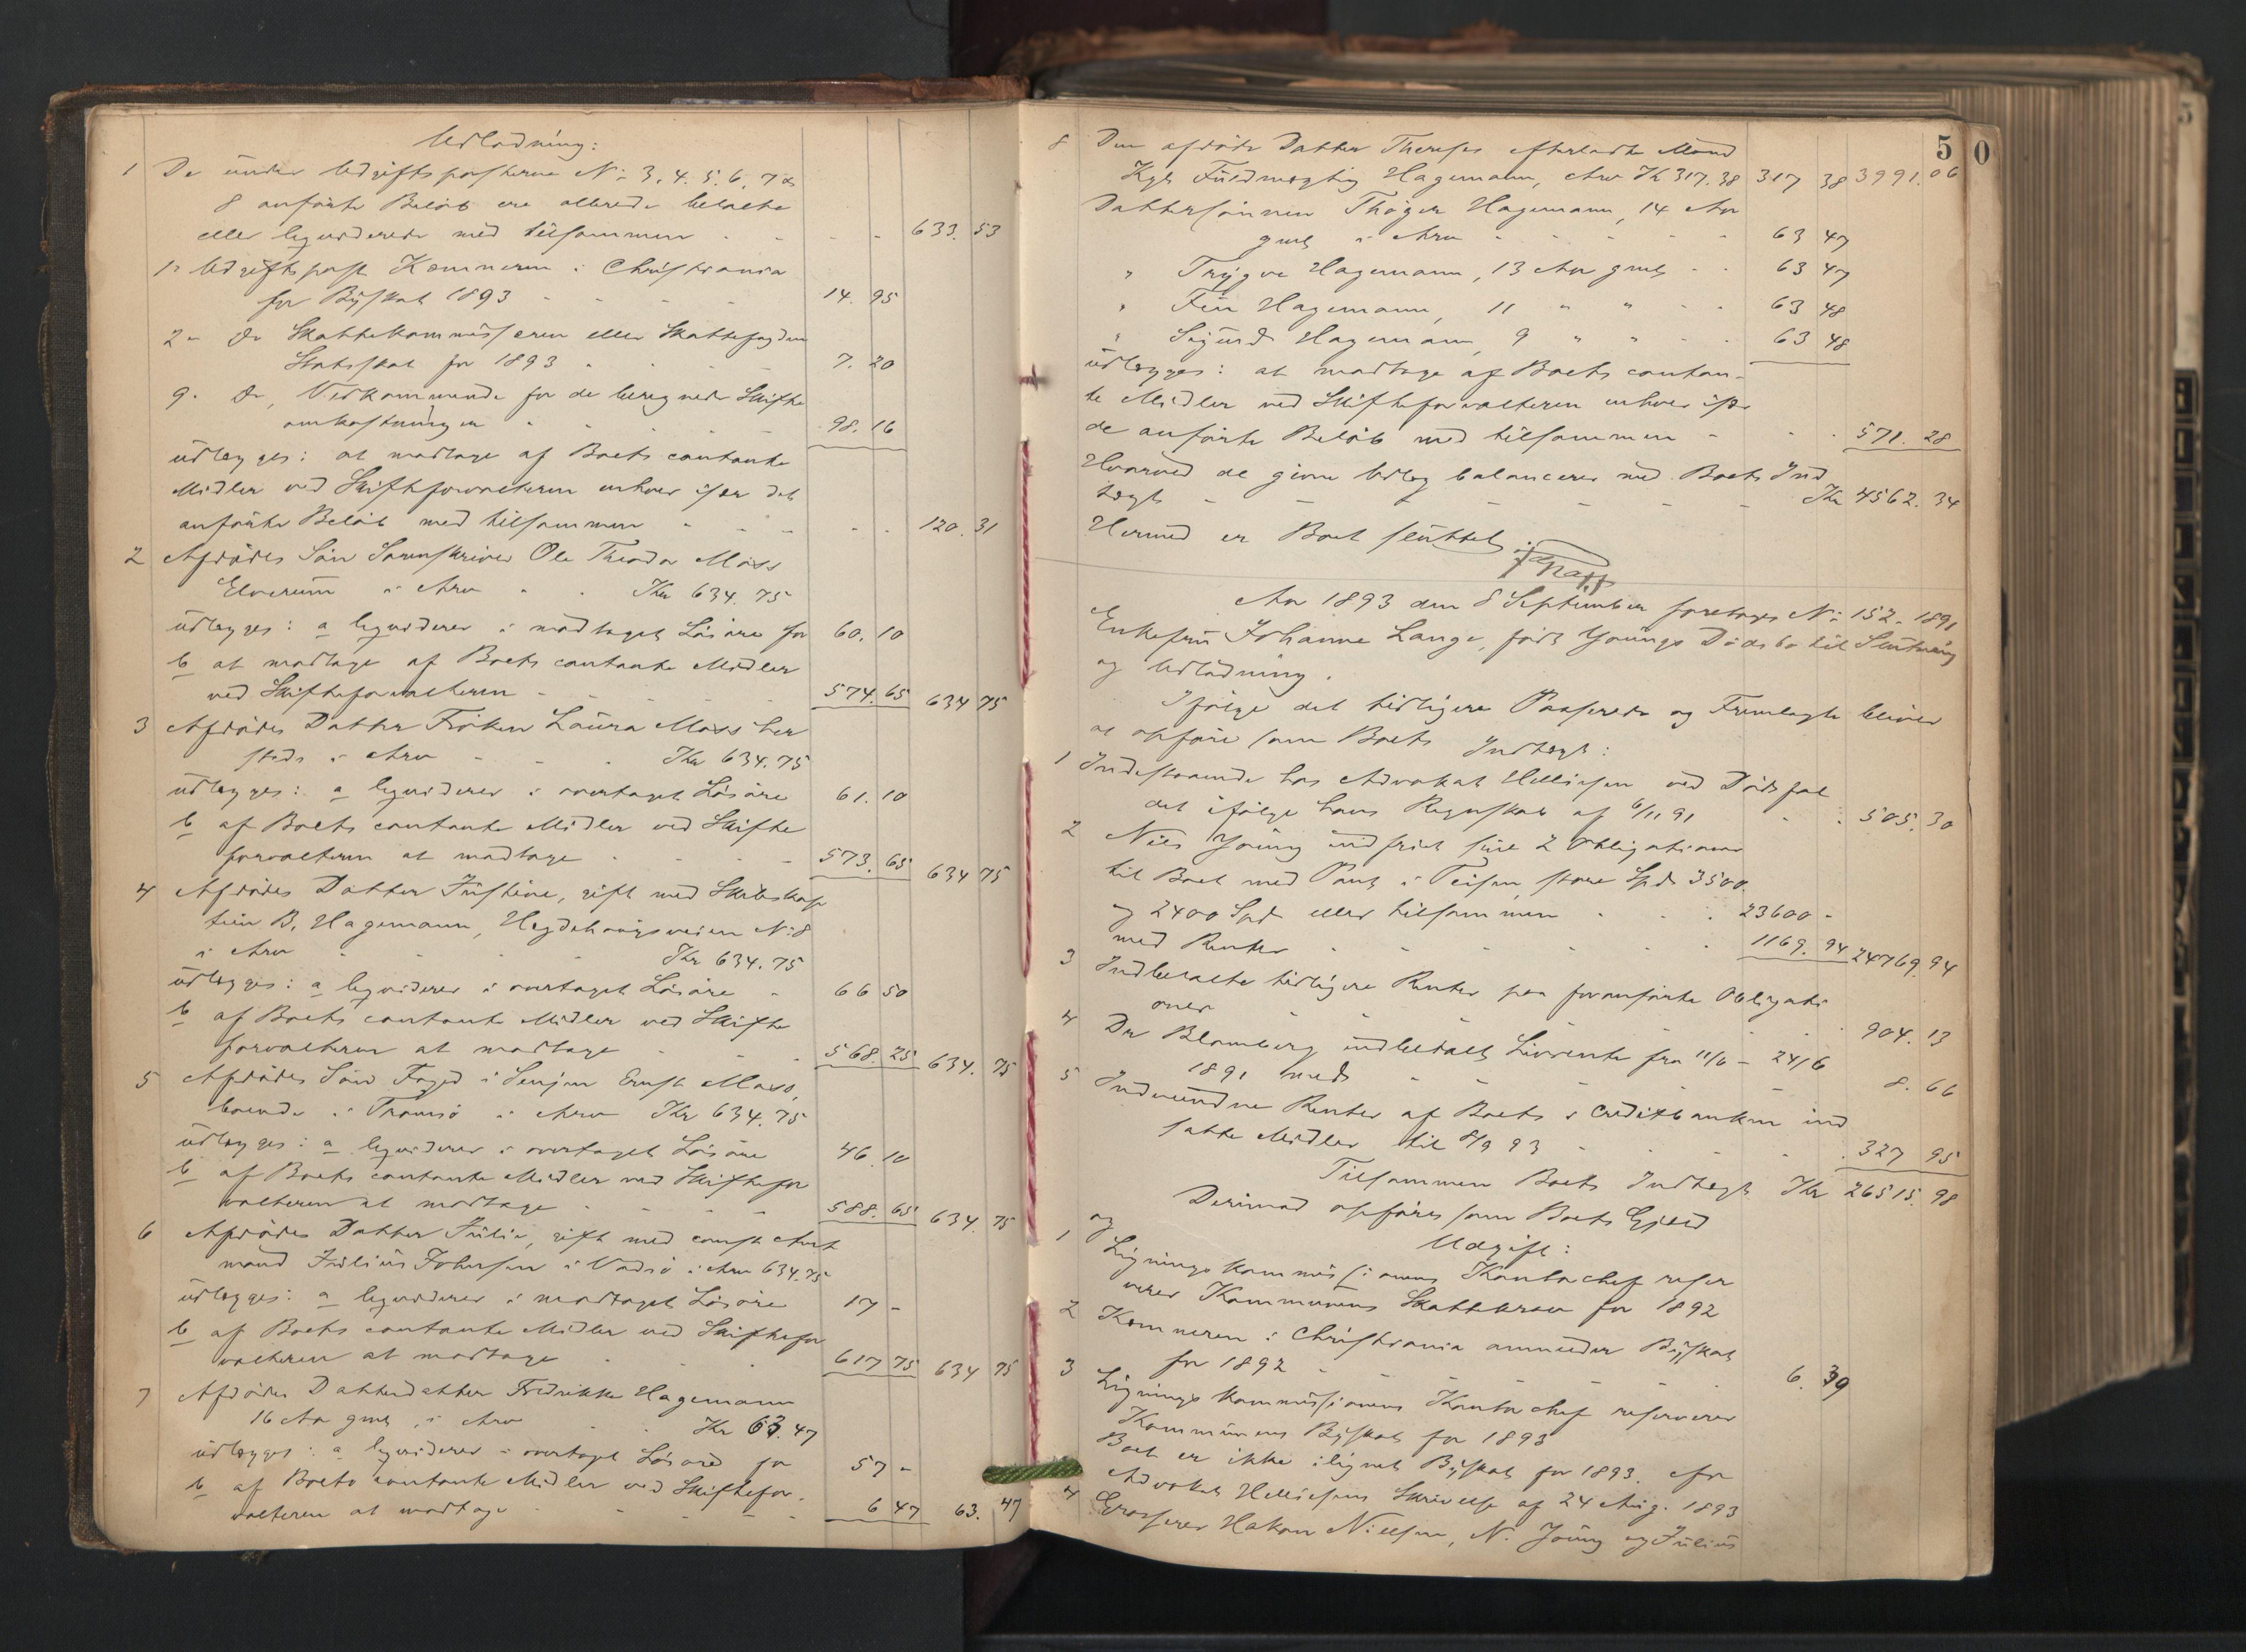 Udlodning:
1 De under Udgiftsposterne No 3, 4, 5, 6, 7 &
8 anførte Beløb ere allerede betalte
eller liqviderede med tilsammen - - - - 633. 53
1- Udgiftspost Kæmneren i Christiania
for Byskat 1893 - - - 14. 95
2- Do Skattekommissæren eller Skattefogden
Statsskat for 1893 - - - 7. 20
9. Do, Vedkommende for de beregnede Skifte
omkostninger - - - 98. 16
udlægges: at modtage af Boets contante
Midler ved Skifteforvalteren enhver især det
anførte Beløb med tilsammen - - - 120. 31
2 Afdødes Søn Sorenskriver Ole Theodor Moss
Elverum i Arv - - Kr 634. 75
udlægges: a liqviderer i modtaget Løsøre for 60. 10
b at modtage af Boets contante Midler
ved Skifteforvalteren - - - 574. 65 634 75
3 Afdødes Datter Frøken Laura Moss her
steds i Arv - - - Kr 634. 75
udlægges: a liqviderer i overtaget Løsøre 61. 10
b af Boets contante Midler ved Skifte
forvalteren at modtage - - - 573. 65 634 75
4 Afdødes Datter Justine, gift med Skibskap
tein B. Hagemann, Hegdehaugsveien No 8
i Arv - - - Kr 634. 75
udlægges: a liqviderer i overtaget Løsøre - 66 50
b af Boets contante Midler ved Skifte
forvalteren at modtage - - - 568. 25 634. 75
5 Afdødes Søn Foged i Senjen Ernst Moss,
boende i Tromsø i Arv Kr 634. 75
udlægges: a liqviderer i overtaget Løsøre 46. 10
b af Boets contante Midler ved Skiftefor
valteren at modtage - - - 588. 65 634. 75
6 Afdødes Datter Julie, gift med const Amt
mand Julius Johansen i Vadsø i Arv 634. 75
udlægges: a liqviderer i modtaget Løsøre 17 -
b af Boets contante Midler ved Skiftefor
valteren at modtage - - - 617 75 634 75
7 Afdødes Datterdatter Fredrikke Hagemann
16 Aar gml, i Arv - - Kr 63. 47
udlægges: a liqviderer i overtaget Løsøre for 57 -
b af Boets contante Midler ved Skiftefor-
valteren at modtage - - - 6 47 63. 47
50
8 Den afdøde Datter Thereses efterladte Mand
Kgl. Fuldmægtig Hagemann, Arv Kr 317. 38 317 38 3991. 06
Dattersønnen Thøger Hagemann, 14 Aar
gml i Arv - - - 63 47
" Trygve Hagemann, 13 Aar gml - - 63 47
" Finn Hagemann, 11 " " - - 63 48
" Sigurd Hagemann, 9 " " - - 63 48
udlægges: at modtage af Boets contan-
te Midler ved Skifteforvalteren enhver især
de anførte Beløb med tilsammen - - - 571. 28
Hvorved de givne Udlæg balancerer med Boets Ind
tægt - - - Kr 4562. 34
Hermed er Boet sluttet.
Aar 1893 den 8 September foretoges No 152- 1891
Enkefru Johanne Lange, født Youngs Dødsbo til Slutning
og Udlodning.
Ifølge det tidligere Passerede og Fremlagte bliver
at opføre som Boets Indtægt:
1 Indestaaende hos Advokat Helliesen ved Dødsfal
det ifølge hans Regnskab af 6/11 91 - - 505. 30
2 Nils Young indfriet sine 2 Obligationer
til Boet med Pant i Teisen, store Spd 3500
og 2400 Spd eller tilsammen - - - 23600 -
med Renter - - - 1169. 94 24769, 94
3 Indbetalte tidligere Renter paa foranførte Obligati
oner - - - 904. 13
4 Dr Blomberg indbetalt Livrente fra 11/6 - 24/6
1891 med - - - 8. 66
5 Indvundne Renter af Boets i Creditbanken ind
satte Midler til 8/9 93 - - - 327 95
Tilsammen Boets Indtægt Kr 26515. 98
Derimod opføres som Boets Gjæld
og
Udgift:
1 Ligningskommissionens Kontorchef reser
verer Kommunens Skattekrav for 1892
2 Kæmneren i Christiania anmelder Byskat
for 1892 - - - 6. 39
3 Ligningskommissionens Kontorchef reserverer
Kommunens Byskat for 1893
Boet er ikke ilignet Byskat for 1893. cfr
Advokat Helliesens Skrivelse af 24 Aug. 1893
4 Grosserer Hakon Nielsen, N. Young og Julius